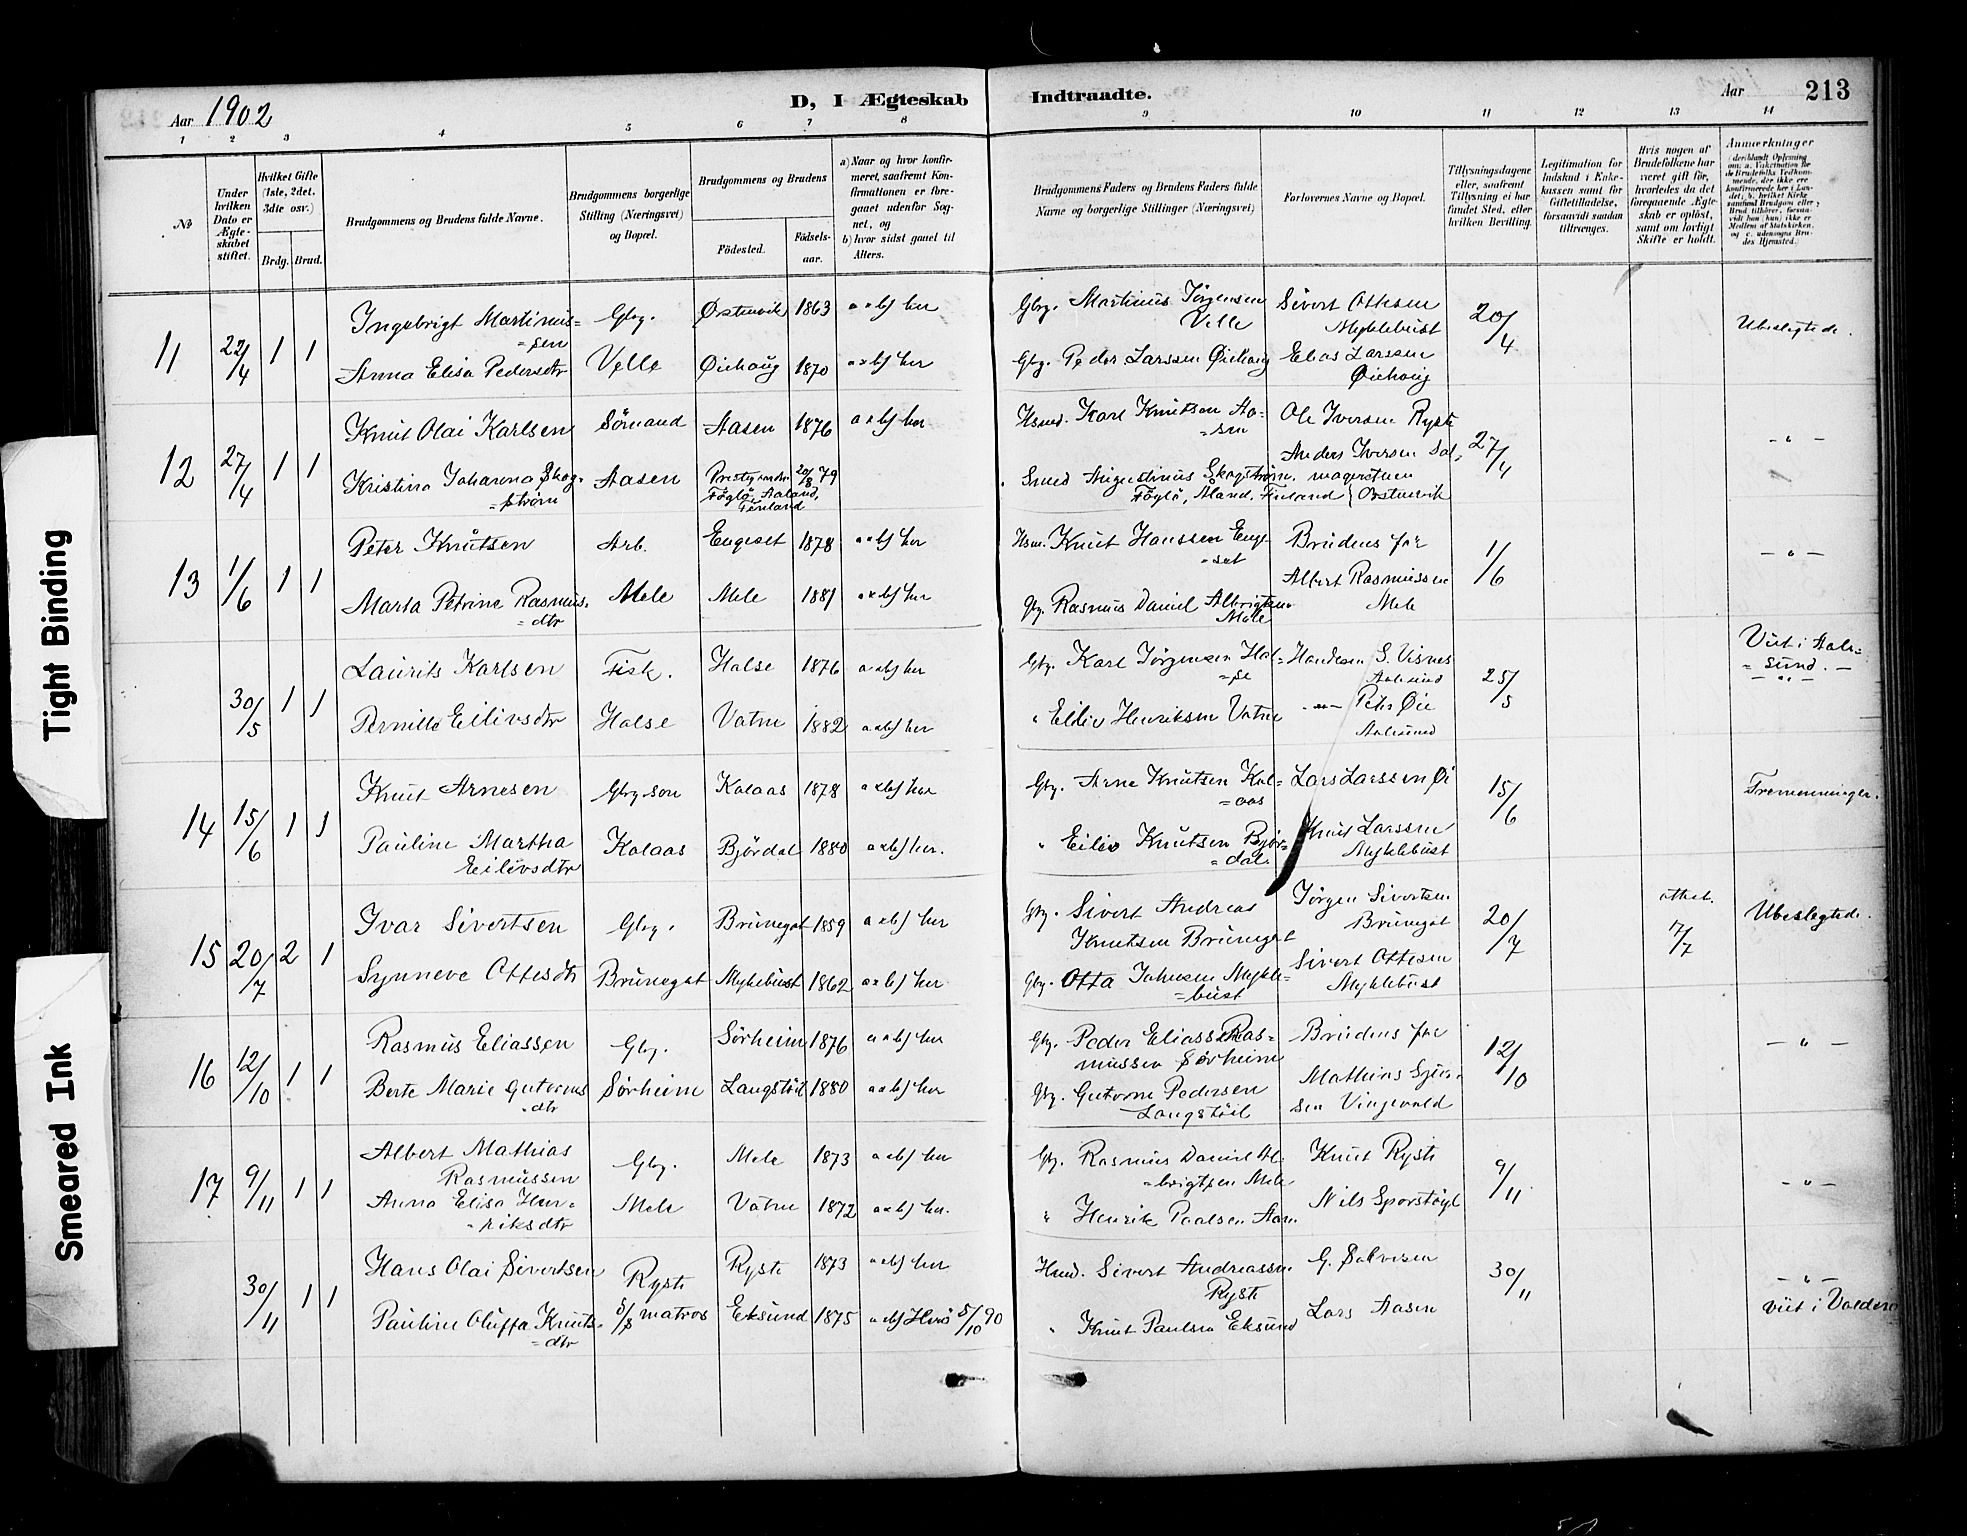 Aar 1902
D, I Ægteskab Indtraadte.
Aar 213
1 2 3 4 5 6 7 8 9 10 11 12 13 14
No
Under hvilken Dato er Ægteskabet stiftet.
Hvilket Gifte (1ste, 2det, 3die osv.)
Brdg. Brud.
Brudgommens og Brudens fulde Navne.
Brudgommens borgerlige Stilling (Næringsvei) og Bopæl.
Brudgommens og Brudens
Fødested.
Fødselsaar.
a) Naar og hvor konfirmeret, saafremt Konfirmationen er foregaaet udenfor Sognet, og
b) hvor sidst gaaet til Alters.
Brudgommens Faders og Brudens Faders fulde Navne og borgerlige Stillinger (Næringsvei)
Forlovernes Navne og Bopæl.
Tillysningsdagene eller, saafremt Tillysning ei har fundet Sted, efter hvilken Bevilling.
Legitimation for Indskud i Enkekassen samt for Giftetilladelse, forsaavidt saadan tiltrænges.
Hvis nogen af Brudefolkene har været gift før, hvorledes da det foregaaende Ægteskab er opløst, samt om lovligt Skifte er holdt.
Anmerkninger
11 22/4 1 1
Ingebrigt Martinus=
=sen
Gbr. Østenvik 1863 a & b) her
Anna Elisa Pedersdtr
Velle Øiehaug 1870 a & b) her
Gbr. Martinus Jørgensen
Velle
Gbr. Peder Larssen Øiehaug
Sivert Ottesen
Myklebust
Elias Larssen
Øiehaug
20/4
Ubeslegtede.
12 27/4 1 1
Knut Olai Karlsen
Sømand Aasen 1876 a & b) her
Kristina Johanna Skog=
=strøm
Aasen
Føglö, Aaland,
Finland
20/8 79
Husmd. Karl Knutsen Aa=
=sen
Smed Augustinus Skogstrøm.
Föglö, Åland. Finland
Ole Iversen Ryste
Anders Iversen
27/4
- " -
13 1/6 1 1
Peter Knutsen
Arb. Engeset 1878 a & b) her
Marta Petrine Rasmus=
=dtr
Mele Mele 1881 a & b) her
Hsm. Knut Hanssen Enge=
=set
Gbr. Rasmus Daniel Albrigtsen
Mele
Brudens far
Albert Rasmussen
Mele
1/6
- " -
30/5 1 1
Laurits Karlsen
Fisk. Halse 1876 a & b) her
Pernille Eilivsdtr
Halse Vatne 1882 a & b) her
Gbr. Karl Jørgensen Hal=
=se
" Eiliv Henriksen Vatne
S. Visnes
Aalesund
- " - Peter Øie
Aalesund
25/5
Viet i Aale=
=sund. -
- " -
14 15/6 1 1
Knut Arnesen
Gbr. søn Kolaas 1878 a & b) her
Pauline Martha
Eilivsdtr
Kolaas Bjørdal 1880 a & b) her.
Gbr. Arne Knutsen Kol=
=aas
" Eiliv Knutsen Bjør=
=dal.
Lars Larssen Øi
Knut Larssen
Myklebust
15/6
Tremenninger.
15 20/7 2 1
Ivar Sivertsen
Gbr. Brunegot 1859 a & b) her
Synneve Ottesdtr
Brunegot Myklebust 1862 a & b) her
Gbr. Sivert Andreas
Knutsen Brunegot
Gbr. Otta Johnsen Mykle=
=bust
Jørgen Sivertsen
Brunegot
Sivert Ottesen
Myklebust
20/7
attest.
7/7
Ubeslegtede.
16 12/10 1 1
Rasmus Eliassen
Gbr. Sørheim 1876 a & b) her
Berte Marie Guttorms
=dtr
Sørheim Langstøil 1880 a & b) her
Gbr. Peder Elias Ras=
mussen Sørheim
Gbr. Guttorm Pedersen
Langstøil
Brudens far
Mathias
sen Vingevold
12/10
- " -
17 9/11 1 1
Albert Mathias
Rasmussen
Gbr. Mele 1873 a & b) her
Anna Elisa Hen=
=riksdtr
Mele Vatne 1872 a & b) her.
Gbr. Rasmus Daniel Al=
=brigtsen Mele
" Henrik Paalsen Aam
Knut Ryste
Nils Sporstøyl
9/11
- " -
30/11 1 1
Hans Olai Sivertsen
Ryste
Ryste 1873 a & b) her
Pauline Oluffa Knuts=
=dtr
matros Eksund 1875 a & b) Herø 5/10 90
Husmd. Sivert Andreassen
Ryste
" Knut Paulsen Eksund
G. Salvesen
Lars Aasen
30/11
- " -
viet i Valderø
Tight Binding
Smeared Ink